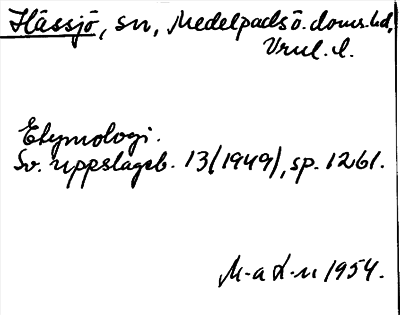 Hässjö, sn, Medelpads ö. doms. hd,
Vnrl. l.
Etymologi.
Sv. uppslagsb. 13(1949), sp. 1261.
M-a L-n 1954.